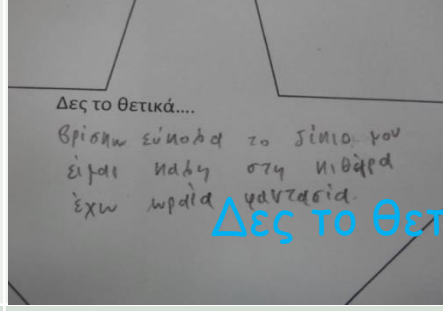 Δες το θετικά....
βρίσκω εύκολα το δίκιο μου
είμαι καλη στη κιθάρα
έχω ωραία φαντασία.
Δες το θετ